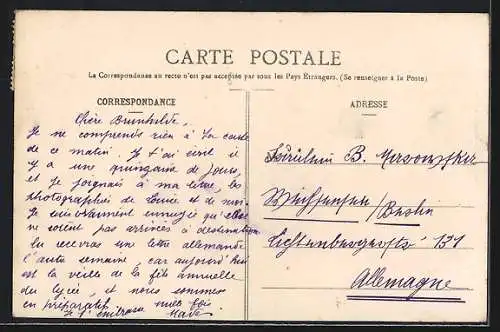 CARTE POSTALE
La Correspondance au recto n'est pas acceptée par tous les Pays Etrangers. (Se renseigner à la Poste)
CORRESPONDANCE
ADRESSE
Chère Brunhilde,
Je ne comprends rien à ta carte
de ce matin. Je t'ai écrit il
y a une quinzaine de jours
et je joignais à ma lettre, les
photographies de Louise et de moi.
Je suis vraiment ennuyée qu'elles
ne soient pas arrivées à destination
Tu recevras une lettre allemande
l'autre semaine, car aujourd'hui
est la veille de la fête annuelle
du lycée, et nous sommes
en préparatifs. mille fois
Je t'embrasse
Fräulein B.
Weissensee / Berlin
Lichtenbergerstr. 131
Allemagne